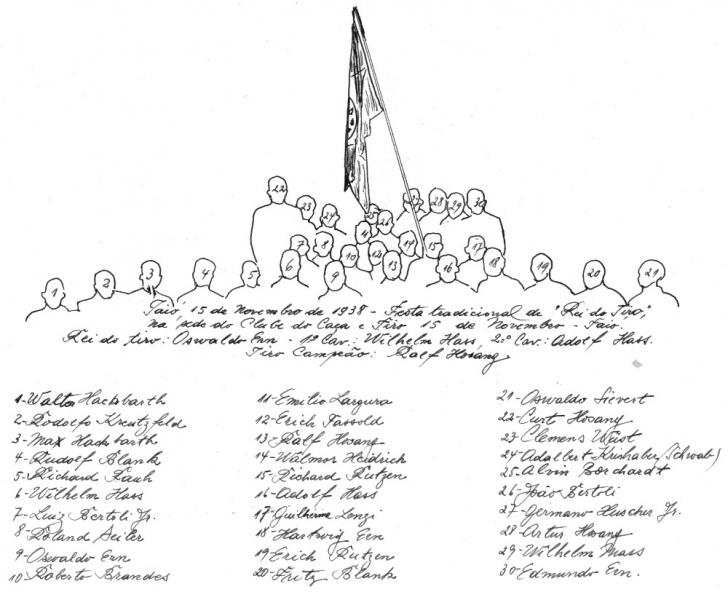 22
23
24
27
28
29
30
26
11
7
8
10
12
14
15
17
1
2
3
4
5
6
9
13
16
18
19
20
21
Taió, 15 de Novembro de 1938 - Festa tradicional de "Rei do Tiro",
na séde do Clube do Caça e Tiro 15 de Novembro - Taió.
Rei do tiro: Oswaldo Ern - 1º Cav.: Wilhelm Hass, 2º Cav.: Adolf Hass.
Tiro Campeão: Ralf Hosang
1-Walter Hackbarth
2-Rodolfo Kreutzfeld
3-Max Hackbarth
4-Rudolf Blank
5-Richard Rauh
6-Wilhelm Hass
7-Luiz Bertoli Jr.
8-Roland Seiler
9-Oswaldo Ern
10 Roberto Brandes
11-Emilio Largura
12-Erich Fassold
13 Ralf Hosang
14-Walmor Heidrich
15-Richard Rutzen
16-Adolf Hass
17-Guilherme Lenzi
18-Hartwig Ern
19 Erich Rutzen
20-Fritz Blank
21-Oswaldo Sievert
22-Curt Hosang
23-Clemens Wüst
24 Adalbert (Schwab)
25-Alvin Borchardt
26-João Bertoli
27-Germano Huscher Jr.
28-Artur Hosang
29-Wilhelm Maass
30-Edmundo Ern.